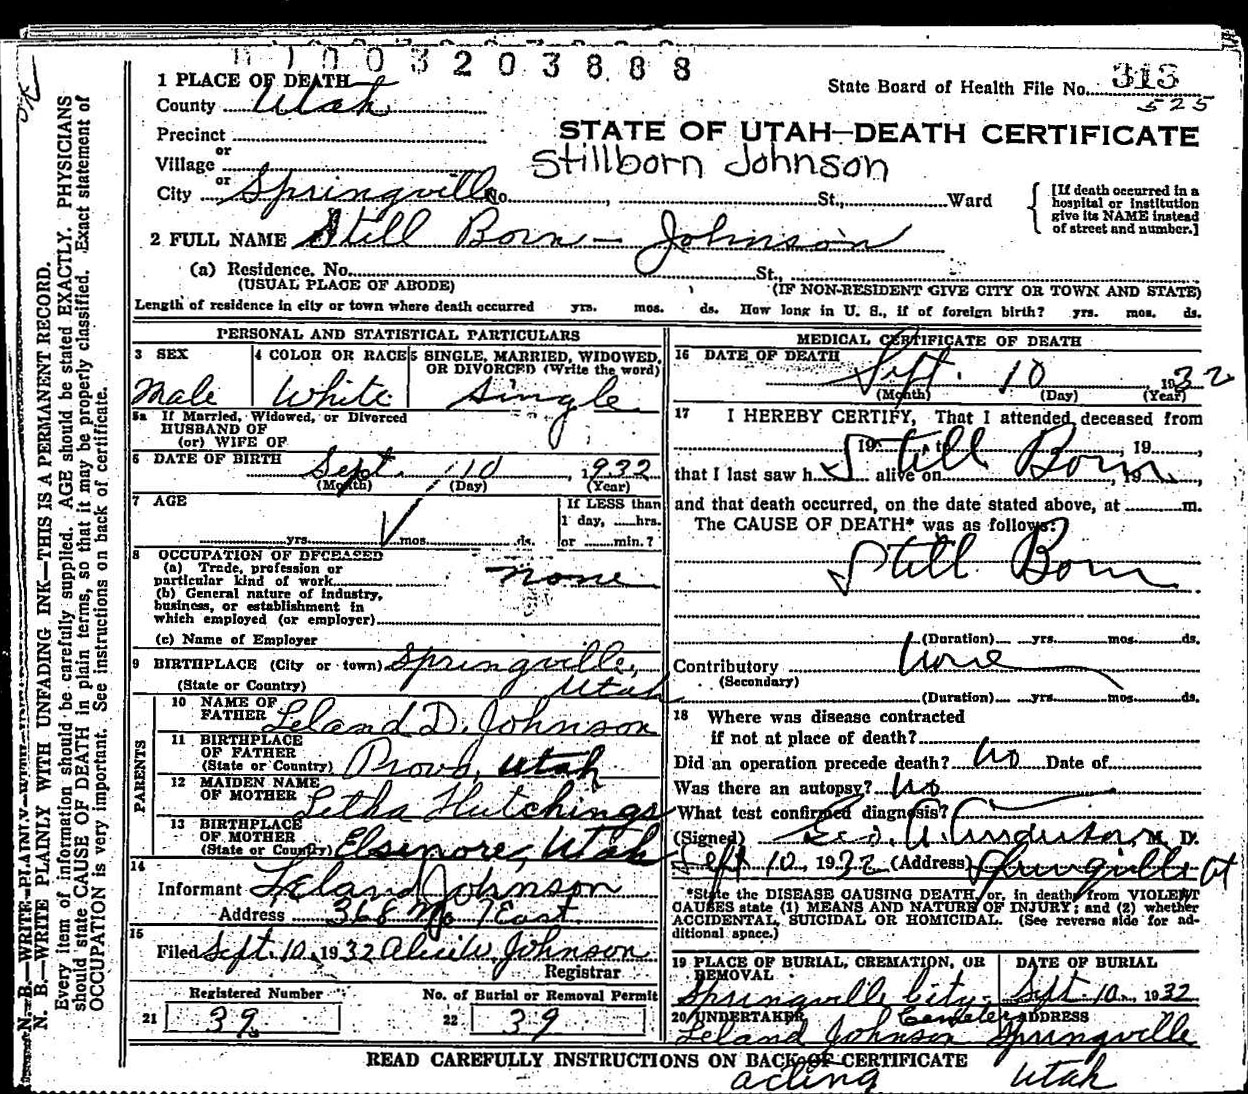 1003203888
1 PLACE OF DEATH
State Board of Health File No. 313
525
County Utah
STATE OF UTAH—DEATH CERTIFICATE
Precinct
or
Village
Stillborn Johnson
or
City Springville No. , St., Ward
[If death occurred in a hospital or institution give its NAME instead of street and number.]
2 FULL NAME Still Born - Johnson
(a) Residence. No. St.,
(USUAL PLACE OF ABODE) (IF NON-RESIDENT GIVE CITY OR TOWN AND STATE)
Length of residence in city or town where death occurred yrs. mos. ds. How long in U. S., if of foreign birth? yrs. mos. ds.
PERSONAL AND STATISTICAL PARTICULARS
3 SEX 4 COLOR OR RACE 5 SINGLE, MARRIED, WIDOWED, OR DIVORCED (Write the word)
Male White Single
5a If Married, Widowed, or Divorced
HUSBAND OF
(or) WIFE OF
6 DATE OF BIRTH Sept. 10 1932
(Month) (Day) (Year)
7 AGE
yrs. mos. ds.
If LESS than
1 day, hrs.
or min.?
8 OCCUPATION OF DECEASED
(a) Trade, profession or
particular kind of work none
(b) General nature of industry,
business, or establishment in
which employed (or employer)
(c) Name of Employer
9 BIRTHPLACE (City or town) Springville,
(State or Country) Utah
PARENTS
10 NAME OF FATHER Leland D. Johnson
11 BIRTHPLACE OF FATHER (State or Country) Provo, Utah
12 MAIDEN NAME OF MOTHER Letha Hutchings
13 BIRTHPLACE OF MOTHER (State or Country) Elsinore, Utah
14
Informant Leland Johnson
Address 368 No 7 East
15
Filed Sept. 10, 1932 Johnson
Registrar
Registered Number No. of Burial or Removal Permit
21 39 22 39
MEDICAL CERTIFICATE OF DEATH
16 DATE OF DEATH Sept. 10 1932
(Month) (Day) (Year)
17 I HEREBY CERTIFY, That I attended deceased from
19 to , 19 ,
Still Born
that I last saw h alive on , 19 ,
and that death occurred, on the date stated above, at m.
The CAUSE OF DEATH* was as follows:
Still Born
(Duration) yrs. mos. ds.
Contributory none
(Secondary)
(Duration) yrs. mos. ds.
18 Where was disease contracted
if not at place of death?
Did an operation precede death? no Date of
Was there an autopsy? no
What test confirmed diagnosis?
(Signed) Geo. A. Anderson, M. D.
Sept 10, 1932 (Address) Springville Ut
*State the DISEASE CAUSING DEATH, or, in deaths from VIOLENT
CAUSES state (1) MEANS AND NATURE OF INJURY; and (2) whether
ACCIDENTAL, SUICIDAL OR HOMICIDAL. (See reverse side for ad-
ditional space.)
19 PLACE OF BURIAL, CREMATION, OR REMOVAL DATE OF BURIAL
Springville City Cemetery Sept. 10, 1932
20 UNDERTAKER ADDRESS
Leland Johnson Springville
READ CAREFULLY INSTRUCTIONS ON BACK OF CERTIFICATE
acting Utah
N. B.—WRITE PLAINLY WITH UNFADING INK—THIS IS A PERMANENT RECORD.
Every item of information should be carefully supplied. AGE should be stated EXACTLY. PHYSICIANS
should state CAUSE OF DEATH in plain terms, so that it may be properly classified. Exact statement of
OCCUPATION is very important. See instructions on back of certificate.